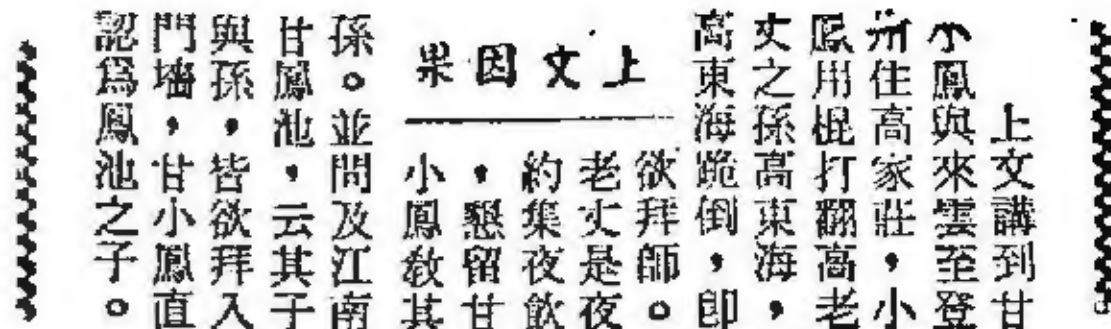 上文講到甘
小鳳與來雲至登
州住高家莊，小
鳳用棍打翻高老
丈之孫高東海，
高東海跪倒，卽
欲拜師。
老丈是夜
約集夜飲
，懇留甘
小鳳敎其
上文因果
孫。並問及江南
甘鳳池，云其子
與孫，皆欲拜入
門墻，甘小鳳直
認爲鳳池之子。